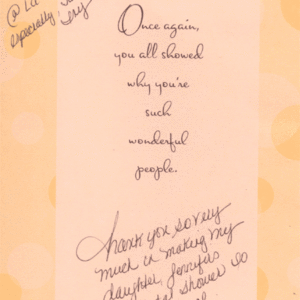 @ La
especially,
Once again,
you all showed
why you're
such
wonderful
people.
Thank you so very
much in making my
daughter, Jennifer's
shower so